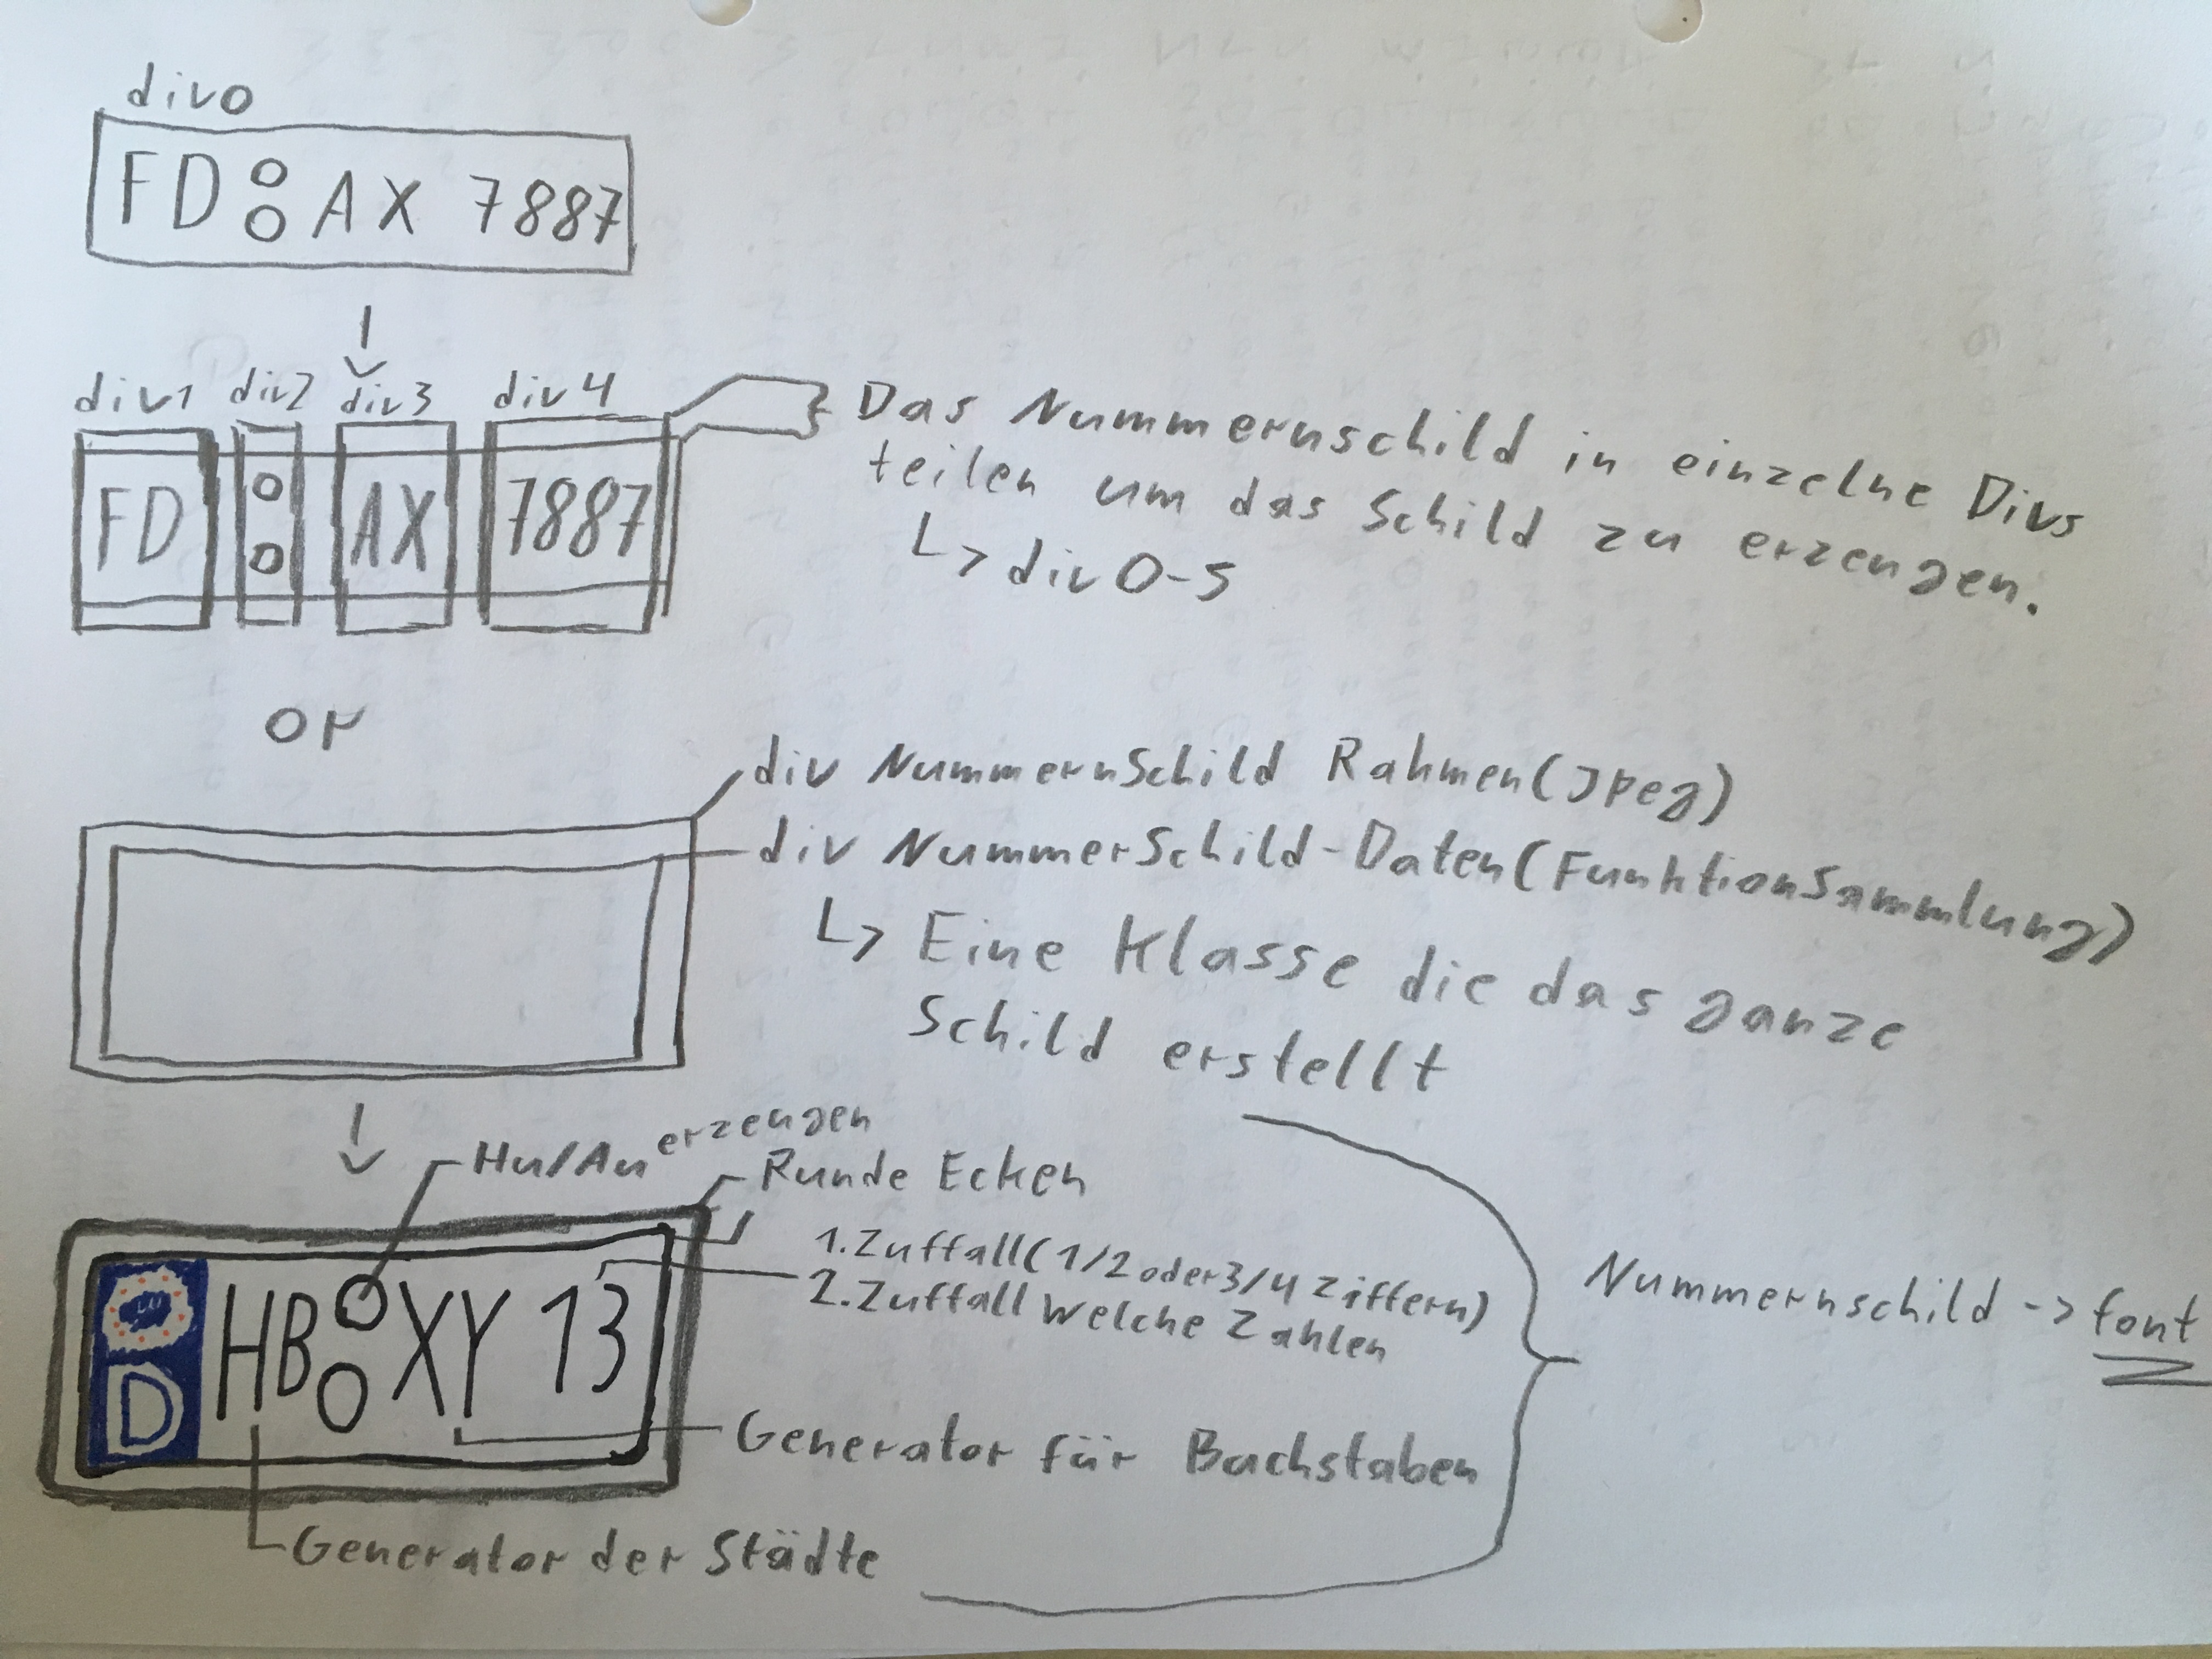 div0
FD AX 7887
div1 div2 div3 div4
FD AX 7887
Das Nummernschild in einzelne Divs
teilen um das Schild zu erzeugen.
↳ div 0-5
or
div NummernSchild Rahmen(Jpeg)
div NummerSchild-Daten(FunktionSammlung)
↳ Eine Klasse die das ganze
Schild erstellt
Hu/Au erzeugen
Runde Ecken
1.Zuffall(1/2 oder 3/4 Ziffern)
2.Zuffall Welche Zahlen
D HB XY 13
Nummernschild -> font
Generator für Buchstaben
Generator der Städte